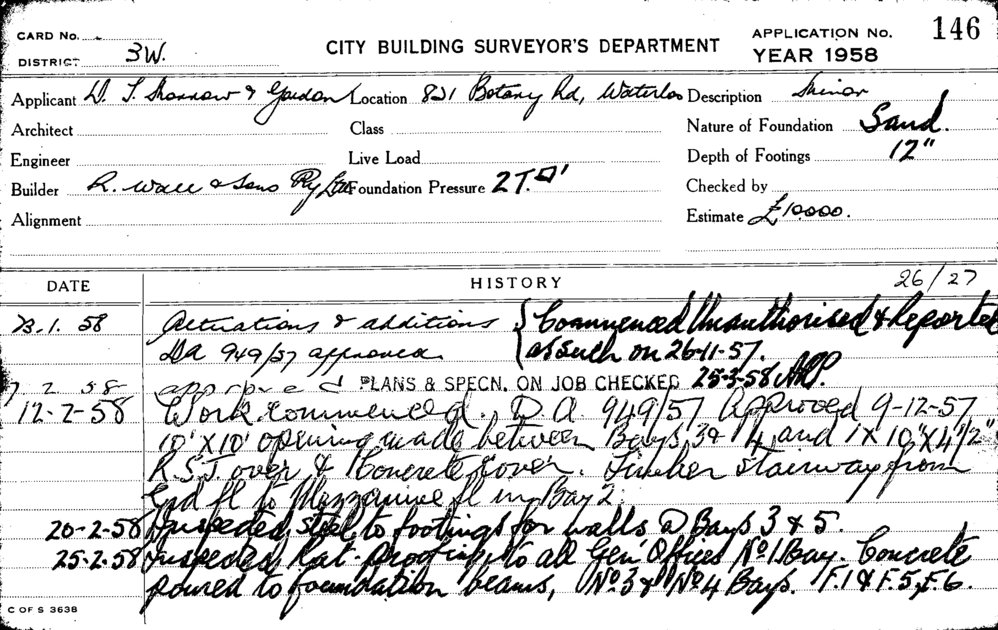 CARD No.
DISTRICT 3W.
CITY BUILDING SURVEYOR'S DEPARTMENT
APPLICATION No. 146
YEAR 1958
Applicant & Gordon Location 821 Botany Rd, Waterloo Description Minor
Architect Class Nature of Foundation Sand.
Engineer Live Load Depth of Footings 12"
Builder R. Wall & Sons Pty Ltd Foundation Pressure 2T.□' Checked by
Alignment Estimate £10000.
26/27
DATE HISTORY
23.1.58 Alterations & additions { Commenced Unauthorised & Reported
Da 949/57 approved as such on 26-11-57.
7.2.58 approved PLANS & SPECN. ON JOB CHECKED 25-3-58
12-2-58 Work commenced. D.A. 949/57 Approved 9-12-57
10' x 10' opening made between Bays 3 & 4, and 1 x 10" x 4 1/2"
R.S.J. over & Concrete cover. Timber stairway from
Grd fl to Mezzanine fl in Bay 2
20-2-58 Inspected steel to footings for walls Bays 3 & 5.
25.2.58 Inspected Rat proofing to all Gen Offices No 1 Bay. Concrete
poured to foundation beams, No 3 & No 4 Bays. F.1 & F.5, F.6.
C OF S 3638